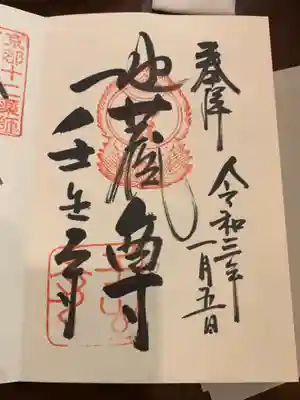 奉拝
令和二年
一月五日
地蔵尊
壬生寺
京都十二薬師